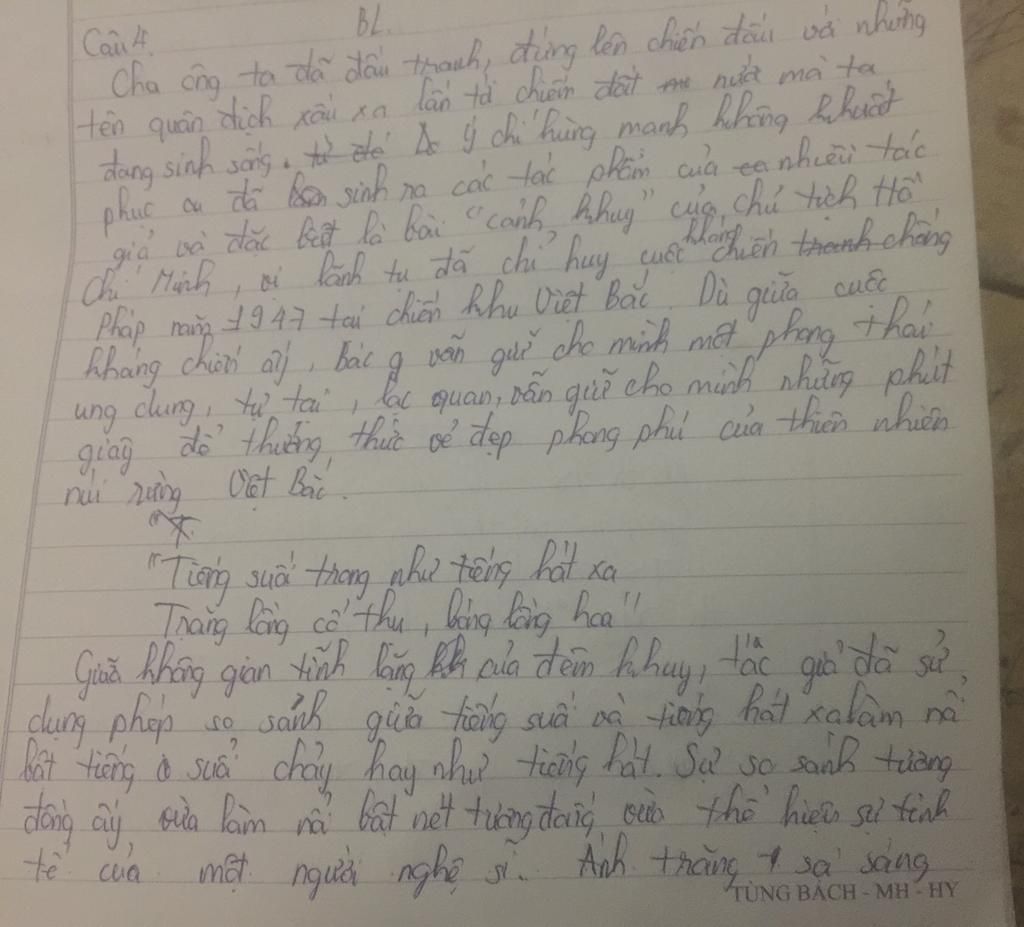 Câu 4. BL.
Cha ông ta đã đấu tranh, đứng lên chiến đấu và những
tên quân địch xấu xa lấn tả chiếm đất nước mà ta
đang sinh sống. ý chí hùng mạnh không khuất
phục đã sinh ra các tác phẩm của nhiều tác
giả và đặc biệt là bài "cảnh khuy" của chủ tịch Hồ
Chí Minh, vị lãnh tụ đã chỉ huy cuộc kháng chiến chống
Pháp năm 1947 tại chiến khu Việt Bắc. Dù giữa cuộc
kháng chiến ấy, Bác vẫn giữ cho mình một phong thái
ung dung, tự tại, lạc quan, vẫn giữ cho mình những phút
giây để thưởng thức vẻ đẹp phong phú của thiên nhiên
núi rừng Việt Bắc.
"Tiếng suối trong như tiếng hát xa
Trăng lồng cổ thu, bóng lồng hoa"
Giữa không gian tĩnh lặng của đêm khuy, tác giả đã sử
dụng phép so sánh giữa tiếng suối và tiếng hát xa làm nổi
bật tiếng suối chảy hay như tiếng hát. Sự so sánh tương
đồng ấy vừa làm nổi bật nét tương đồng vừa thể hiện sự tinh
tế của một người nghệ sĩ. Ánh trăng sọi sáng
TÙNG BÁCH - MH - HY